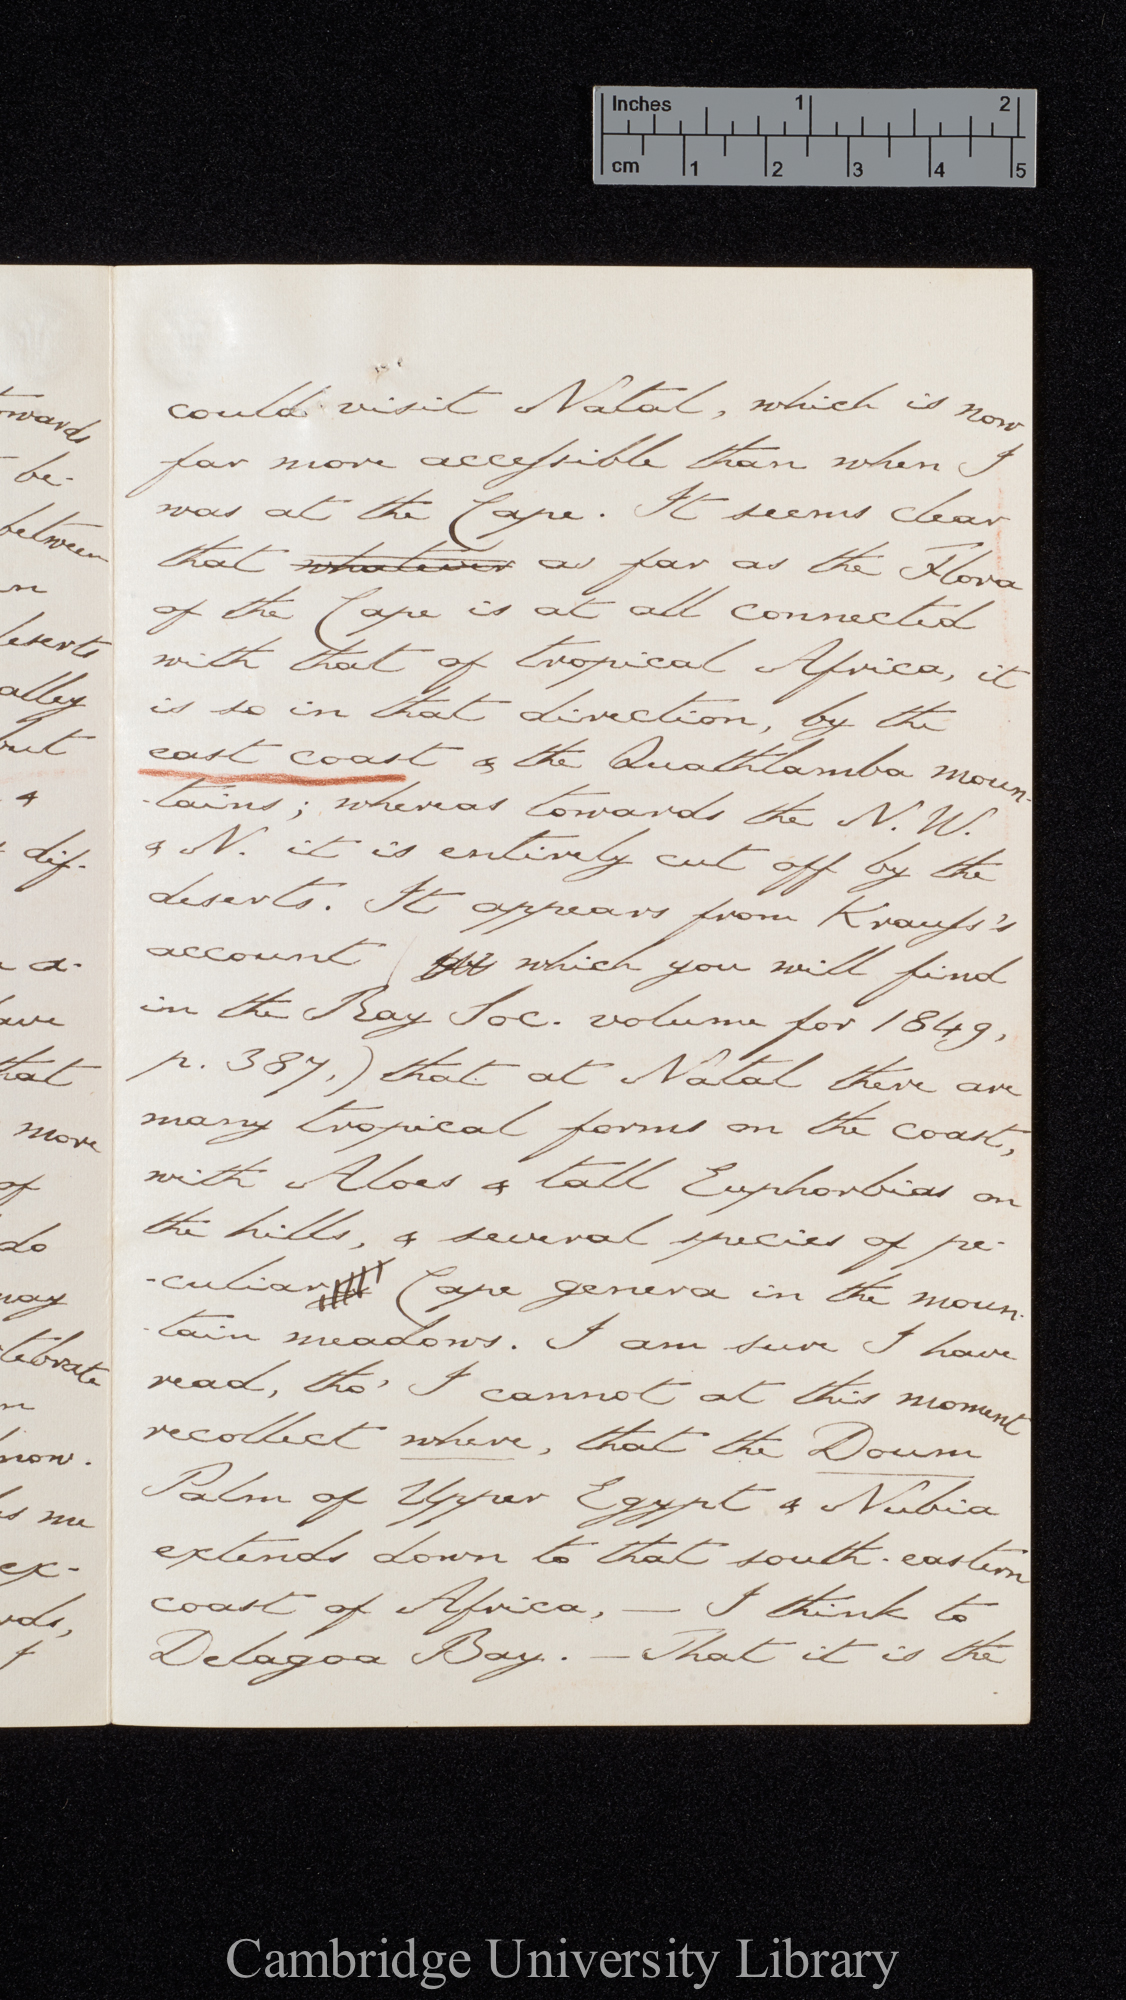 Inches 1 2
cm 1 2 3 4 5
owards
be-
between
deserts
alley
but
&
dif-
a-
have
that
more
of
do
may
celebrate
know.
me
ex-
could visit Natal, which is now
far more accessible than when I
was at the Cape. It seems clear
that whatever as far as the Flora
of the Cape is at all connected
with that of tropical Africa, it
is so in that direction, by the
east coast & the Quathlamba moun-
-tains; whereas towards the N.W.
& N. it is entirely cut off by the
deserts. It appears from Krauss's
account ( which you will find
in the Ray Soc. volume for 1849,
p. 387,) that at Natal there are
many tropical forms on the coast,
with Aloes & tall Euphorbias on
the hills, & several species of pe-
-culiar Cape genera in the moun-
-tain meadows. I am sure I have
read, tho' I cannot at this moment
recollect where, that the Doum
Palm of Upper Egypt & Nubia
extends down to that south-eastern
coast of Africa, — I think to
Delagoa Bay. — That it is the
Cambridge University Library